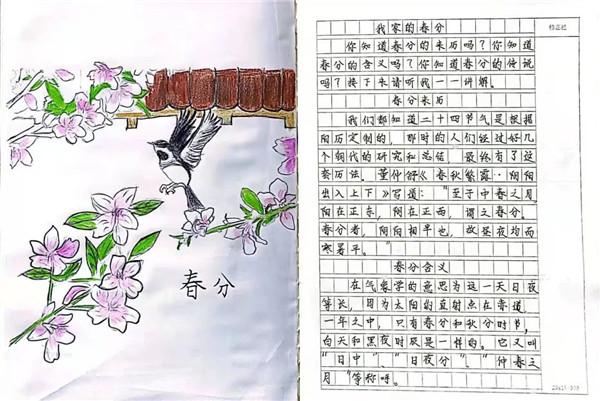 春分
我家的春分
你知道春分的来历吗？你知道
春分的含义吗？你知道春分的传说
吗？接下来请听我一一讲解。
春分来历
我们都知道二十四节气是根据
阳历定制的，那时的人们经过好几
个朝代的研究和总结，最终有了这
套历法。董仲舒《春秋繁露·阴阳
出入上下》写道：“至于中春之月，
阳在正东，阴在正西，谓之春分。
春分者，阴阳相半也，故昼夜均而
寒暑平。”
春分含义
在气象学的意思为这一天日夜
等长，因为太阳的直射点在赤道，
一年之中，只有春分和秋分时节，
白天和黑夜时段是一样的。它又叫
“日中”、“日夜分”、“仲春之
月”等称呼。
修正栏